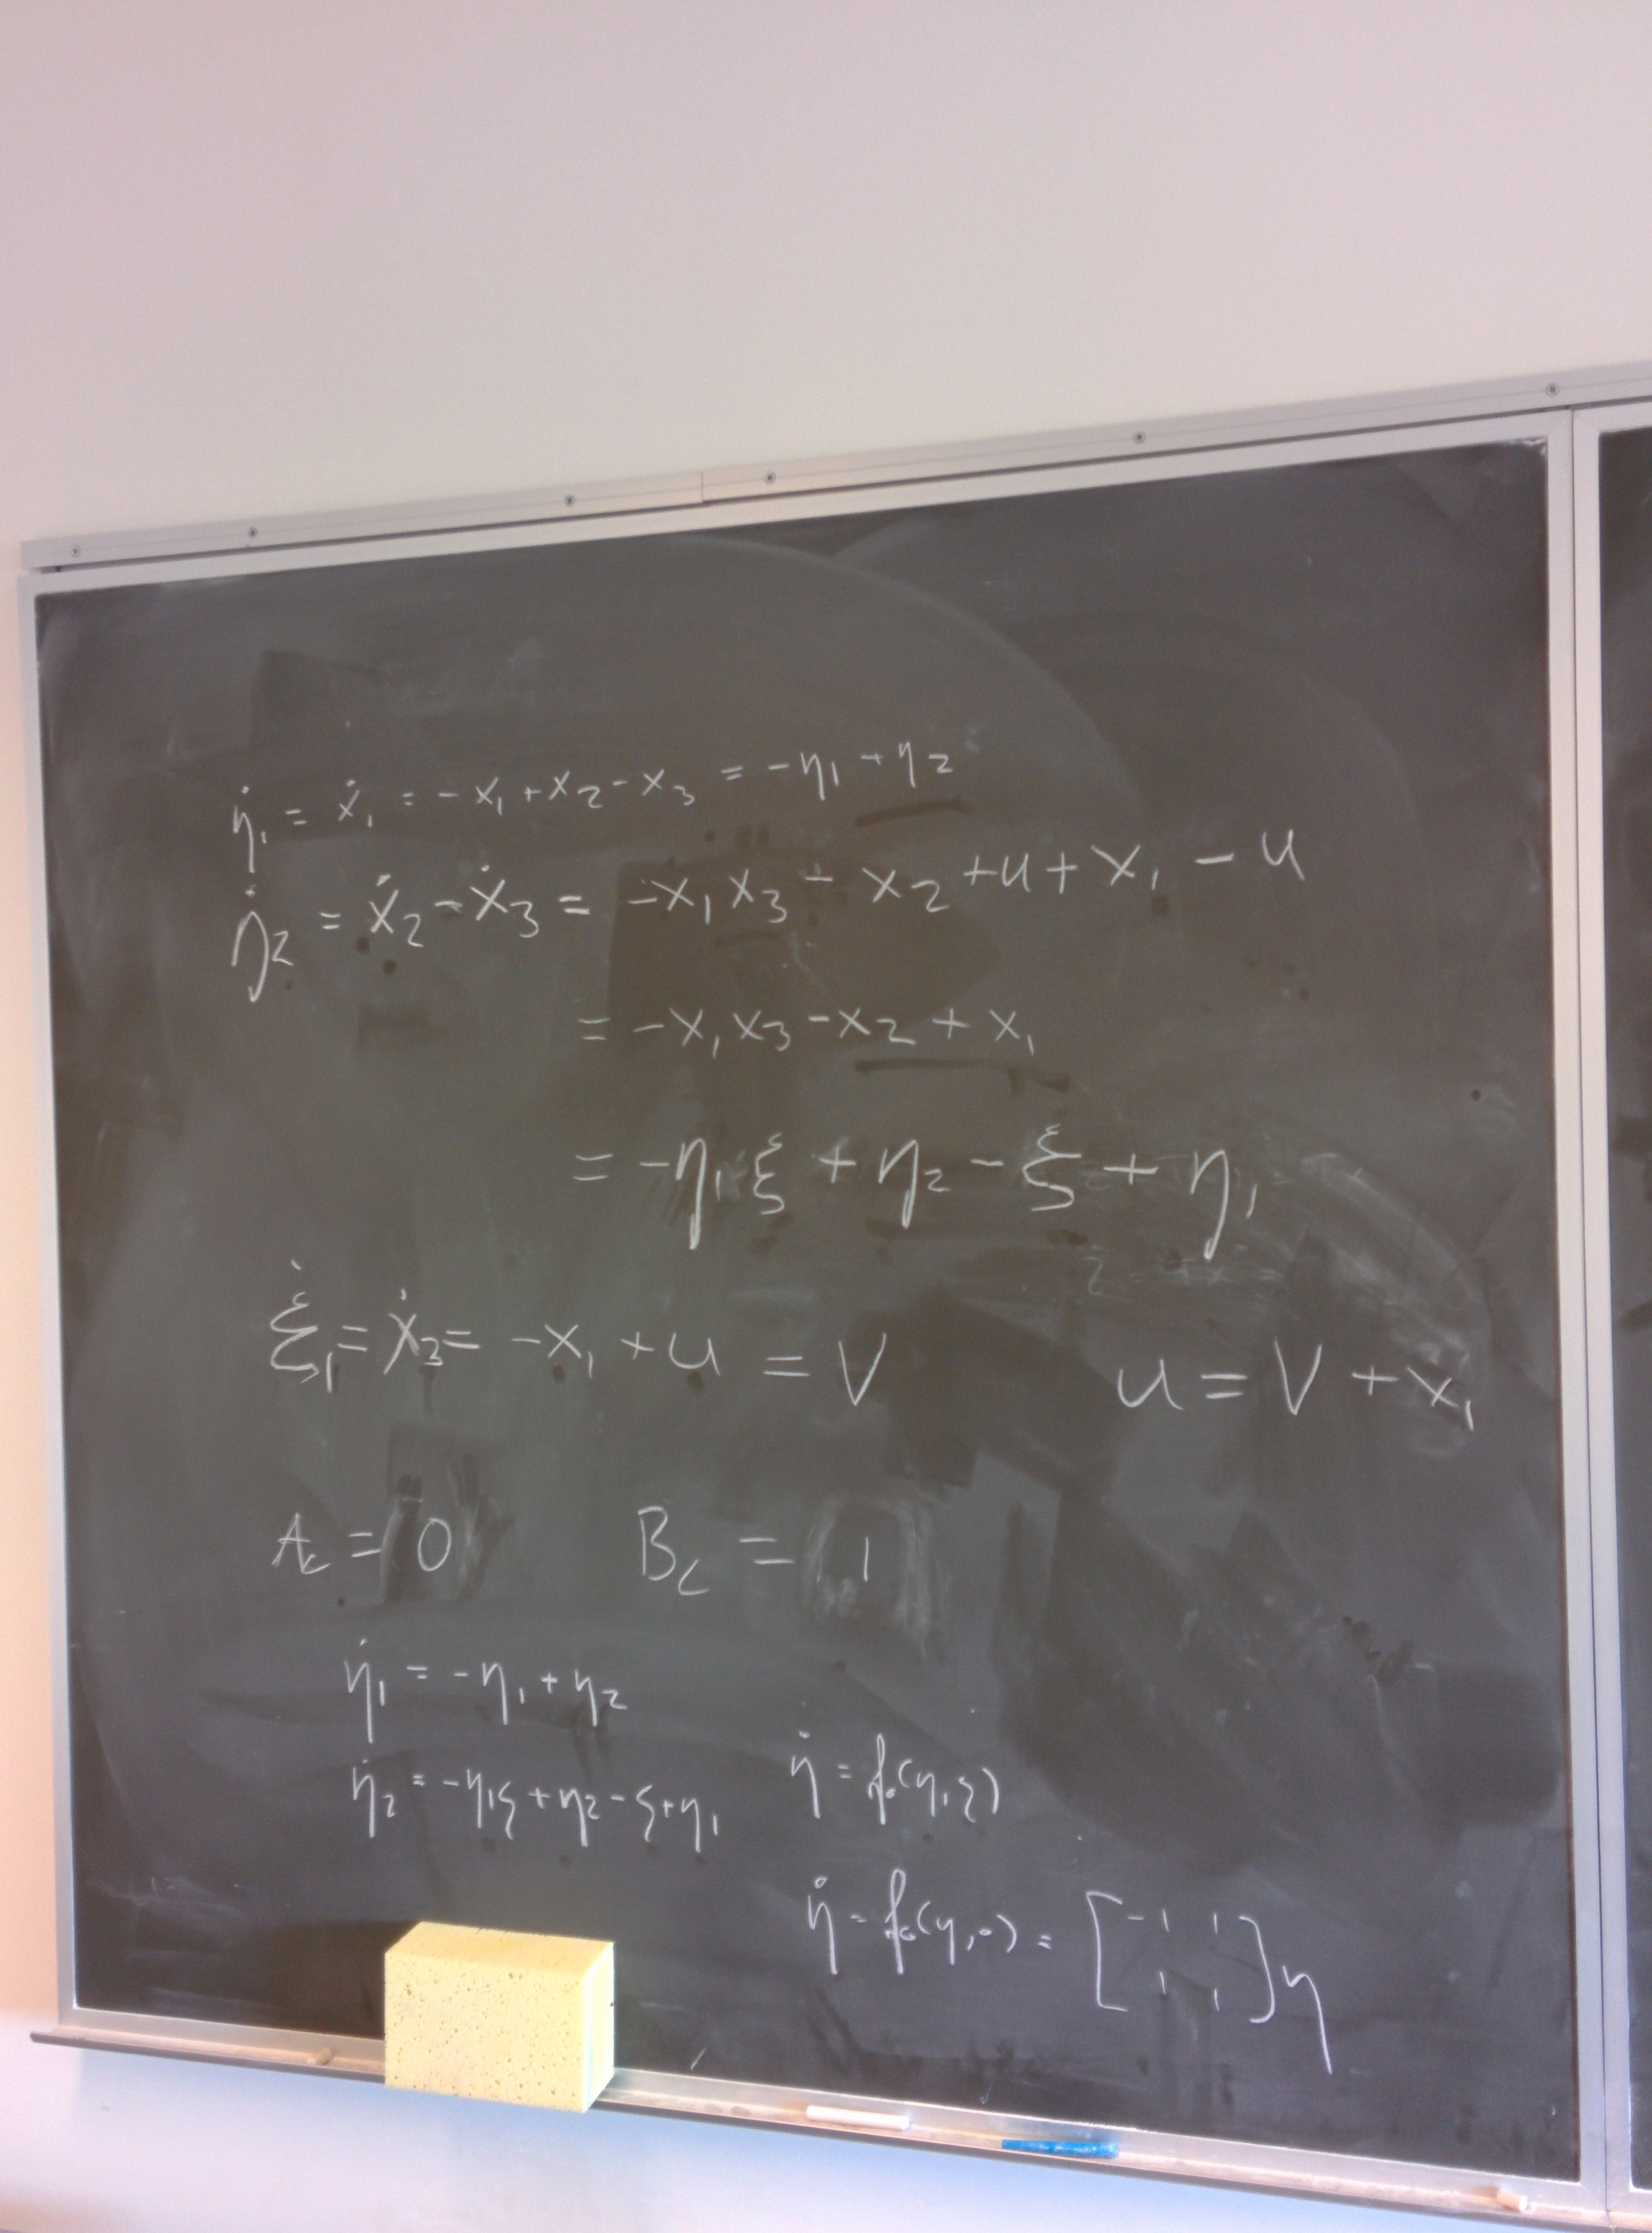 η̇₁ = ẋ₁ = -x₁ + x₂ - x₃ = -η₁ + η₂
η̇₂ = ẋ₂ - ẋ₃ = -x₁x₃ - x₂ + u + x₁ - u
= -x₁x₃ - x₂ + x₁
= -η₁ξ + η₂ - ξ + η₁
ξ̇₁ = ẋ₃ = -x₁ + u = V u = V + x₁
A_c = 0 B_c = 1
η̇₁ = -η₁ + η₂
η̇₂ = -η₁ξ + η₂ - ξ + η₁ η̇ = f₀(η,ξ)
η̇ = f₀(η,0) = [-1 1; 1 1]η